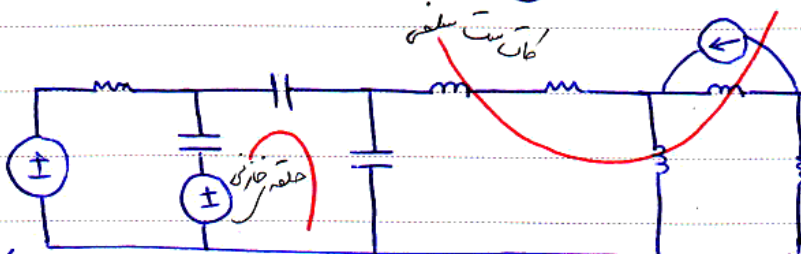 کات ست سلفی
حلقه خازنی